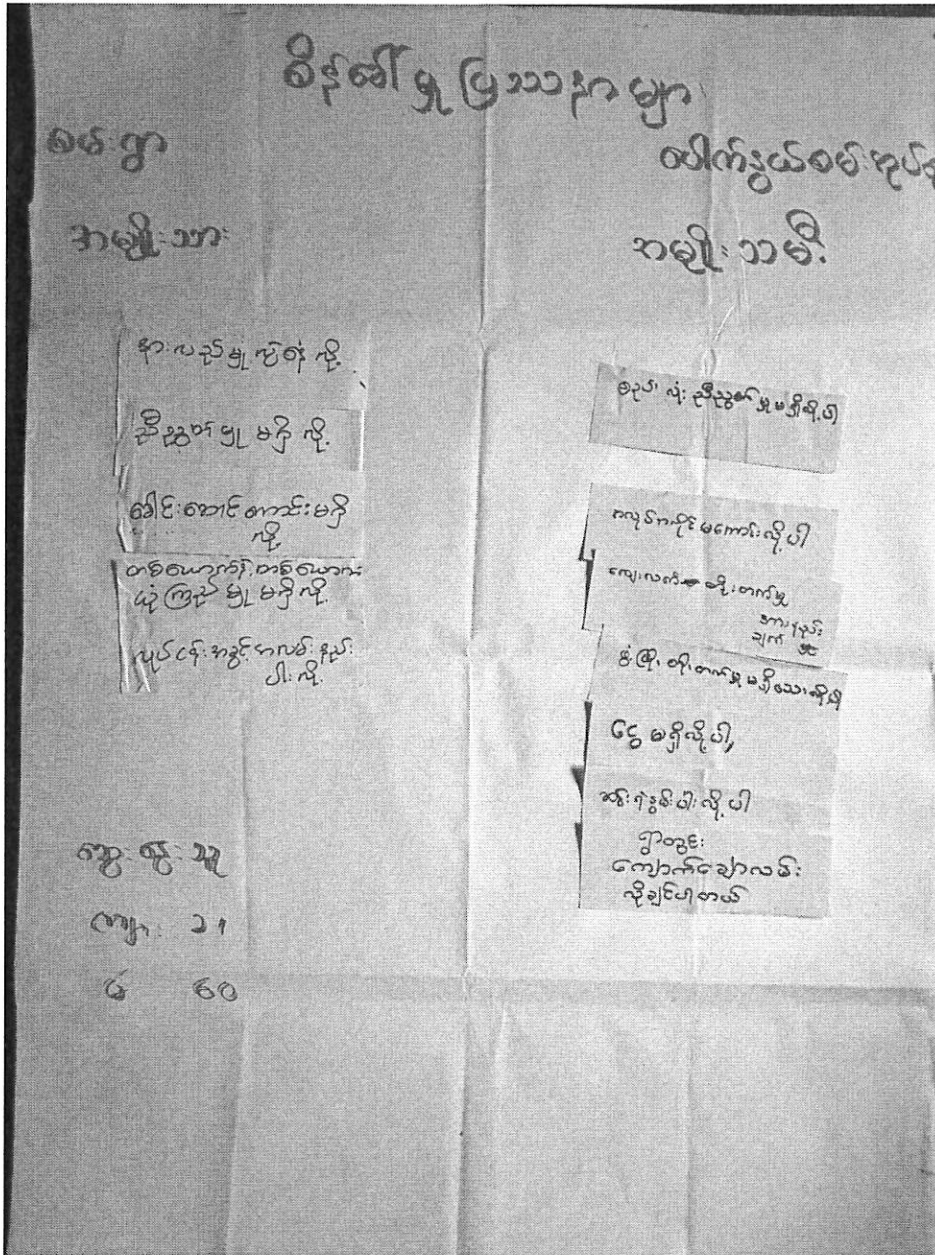 စိန်ခေါ်မှု ပြဿနာ များ
စမ်းရွာ
ပေါက်နွယ်စမ်းအုပ်စု
အမျိုးသား
အမျိုးသမီး
နားလည်မှု လွဲရန် လို့
ညီညွတ်မှု မရှိ လို့
ခေါင်းဆောင်ကောင်းမရှိ
လို့
တစ်ယောက်နဲ့တစ်ယောက်
ယုံကြည် မှု မရှိ လို့
လုပ်ငန်းအခွင့်အလမ်းနည်း
ပါးလို့
စည်းလုံးညီညွတ်မှုမရှိလို့ပါ
အလုပ်အကိုင်မကောင်းလို့ပါ
ကျေးလက် တိုးတက်မှု
အားနည်း
ချက်
ဖွံ့ဖြိုးတိုးတက်မှုမရှိသေးလို့ပါ
ငွေမရှိလို့ပါ
ဆင်းရဲနွမ်းပါးလို့ပါ
ရွာတွင်း
ကျောက်ချောလမ်း
လိုချင်ပါတယ်
ဆွေးနွေးသူ
ကျား ၁၅
မ ၆၀